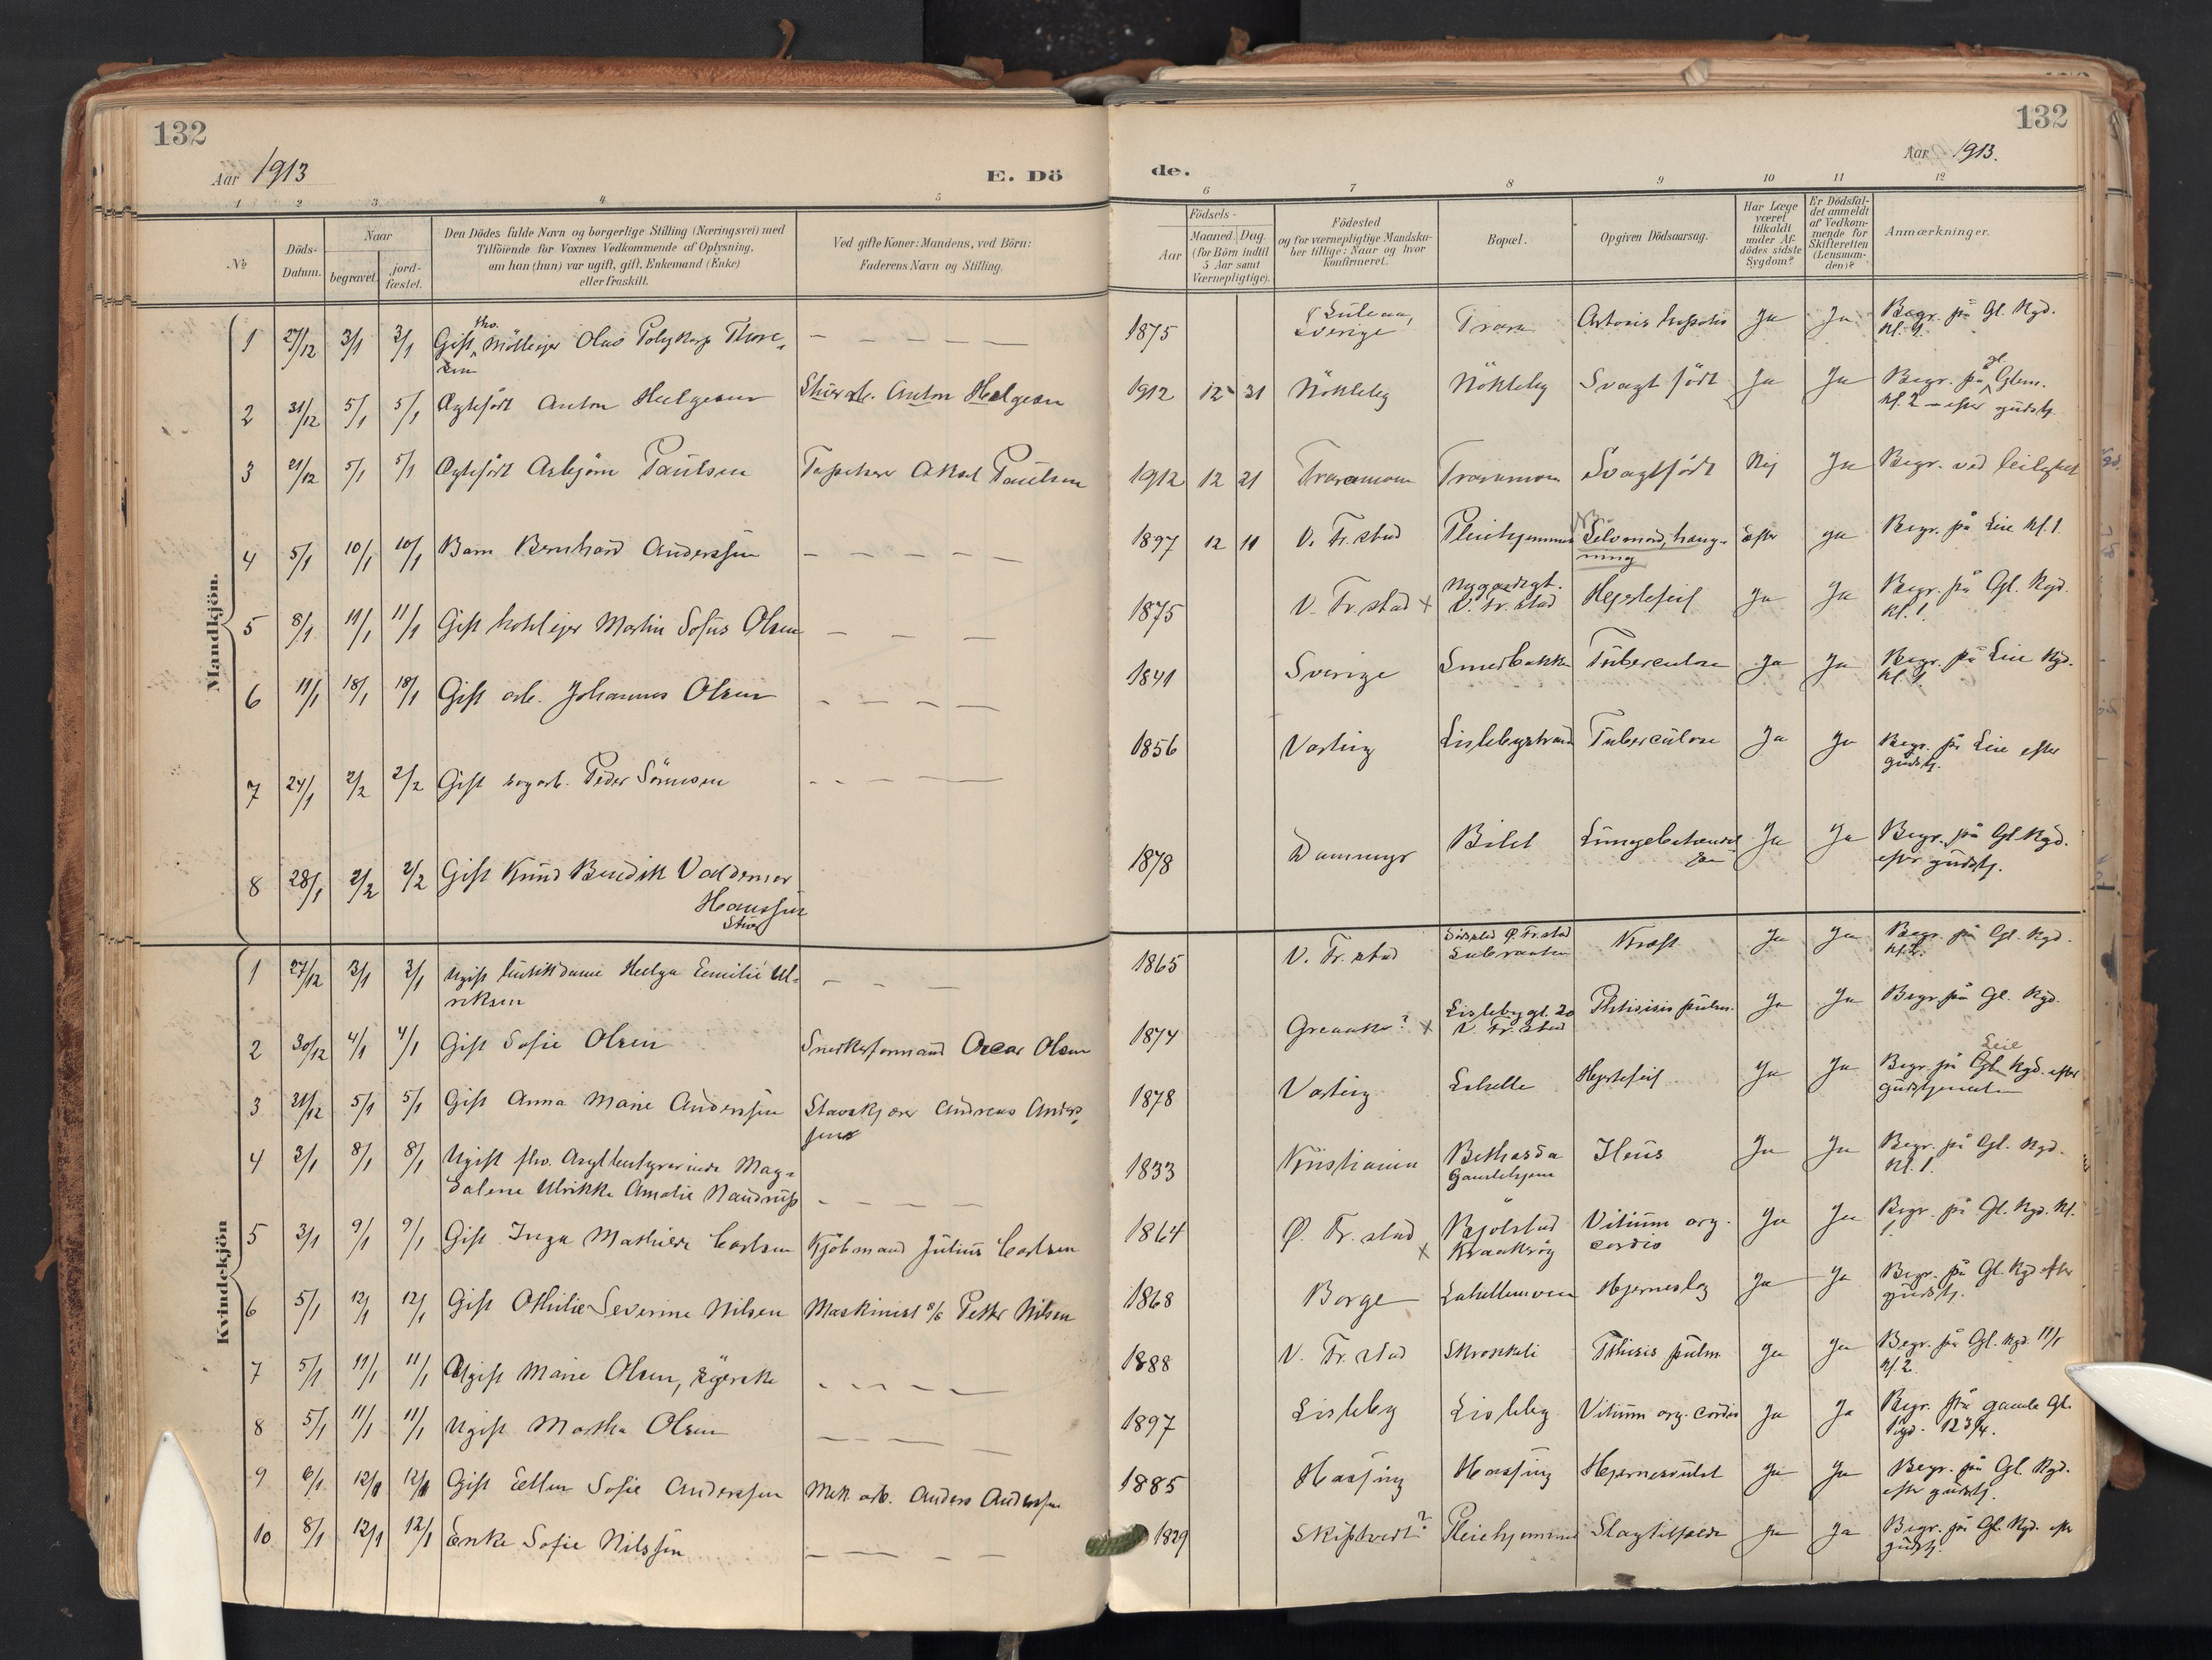 132
Aar 1913
E. Dö
1 2 3 4 5
No
Döds-
Datum.
Naar
begravet.
jord-
fæstet.
Den Dödes fulde Navn og borgerlige Stilling (Næringsvei) med
Tilföiende for Voxnes Vedkommende af Oplysning,
om han (hun) var ugift, gift, Enkemand (Enke)
eller fraskilt.
Ved gifte Koner: Mandens, ved Börn:
Faderens Navn og Stilling.
Mandkjön.
fhv.
1 27/12 3/1 3/1 Gift Mölleejer Olus Polykarp Thore-
sen
2 31/12 5/1 5/1 Ægtefödt Anton Helgesen Anton Helgesen
3 21/12 5/1 5/1 Ægtefödt Asbjörn Paulsen Tapetserer Aksel Paulsen
4 5/1 10/1 10/1 Barn Bernhard Anderssen
5 8/1 11/1 11/1 Gift hotelejer Martin Sofus Olsen
6 11/1 18/1 18/1 Gift arb. Johannes Olsen
7 24/1 2/2 2/2 Gift Peder Sörensen
8 28/1 2/2 2/2 Gift Knud Bendik Valdemar
Hanssen
Kvindekjön
1 27/12 3/1 3/1 Ugift butikdame Helga Emilie Ul-
riksen
2 30/12 4/1 4/1 Gift Sofie Olsen Snedkerformand Oscar Olsen
3 31/12 5/1 5/1 Gift Anna Marie Anderssen Andreas Anders-
sen
4 3/1 8/1 8/1 Ugift fhv. Asylbestyrerinde Mag-
dalene Ulrikke Amalie Naudrup
5 3/1 9/1 9/1 Gift Inga Mathilde Carlsen Kjöbmand Julius Carlsen
6 5/1 12/1 12/1 Gift Othilie Severine Nilsen Maskinist Petter Nilsen
7 5/1 11/1 11/1 Ugift Marie Olsen, syerske
8 5/1 11/1 11/1 Ugift Martha Olsen
9 6/1 12/1 12/1 Gift Ellen Sofie Anderssen Mek. arb. Anders Anderssen
10 8/1 12/1 12/1 Enke Sofie Nilssen
132
Aar 1913.
de.
6 7 8 9 10 11 12
Födsels-
Aar
Maaned. Dag.
(for Börn indtil
5 Aar samt
Værnepligtige).
Födested
og for værnepligtige Mandska-
ber tillige: Naar og hvor
konfirmeret.
Bopæl.
Opgiven Dödsaarsag.
Har Læge
været
tilkaldt
under Af-
dödes sidste
Sygdom?
Er Dödsfal-
det anmeldt
af Vedkom-
mende for
Skifteretten
(Lensman-
den)?
Anmærkninger.
1875 Luleaa,
Sverige Trara Ja Ja Begr. på Gl. Kgd.
Kl. 1.
1912 12 31 Nökleby Nökleby Svagt födt Ja Ja Begr. på gl. Glem.
Kl. 2 - efter gudstj.
1912 12 21 Traramoen Traramoen Svagtfödt Nej Ja Begr. ved leilighet
1897 12 11 V. Fr.stad Pleiehjemmet Selvmord, hæng-
ning Efter Ja Begr. på Leie Kl. 1.
1875 V. Fr.stad x Nygaardsgt.
V. Fr.stad Hjertefeil Ja Ja Begr. på Gl. Kgd.
Kl. 1.
1841 Sverige Smedbakken Tuberculose Ja Ja Begr. på Leie Kgd.
Kl. 1.
1856 Varteig Lislebystrand Tuberculose Ja Ja Begr. på Leie efter
gudstj.
1878 Dammyr Bilet Lungebetændel
se Ja Ja Begr. på Gl. Kgd.
efter gudstj.
1865 V. Fr.stad Kræft Ja Ja Begr. på Gl. Kgd.
Kl. 2.
1874 Greaaker? x Lislebygt. 20
V. Fr.stad Phtisisis pulm. Ja Ja Begr. på Gl. Kgd.
1878 Varteig Labelle Hjertefeil Ja Ja Begr. på Leie Kgd. efter
gudstjenesten
1833 Kristiania Bethesda
Gamlehjem Ileus Ja Ja Begr. på Gl. Kgd.
Kl. 1.
1864 Ø. Fr.stad x Bjölstad
Kraakeröy Vitium org.
cordis Ja Ja Begr. på Gl. Kgd. Kl.
1.
1868 Borge Labellemoen Hjerneslag Ja Ja Begr. på Gl. Kgd efter
gudstj.
1888 V. Fr.stad Phtisis pulm. Ja Ja Begr. på Gl. Kgd. 11/1
Kl. 2.
1897 Lisleby Lisleby Vitium org. cordis Ja Ja Begr. på gamle Gl.
Kgd. 12 3/4.
1885 Haasing Haasing Hjernesvulst Ja Ja Begr. på Gl. Kgd.
efter gudstj.
1829 Skiptvedt? Pleiehjemmet Slagtilfælde Ja Ja Begr. på Gl. Kgd. efter
gudstj.